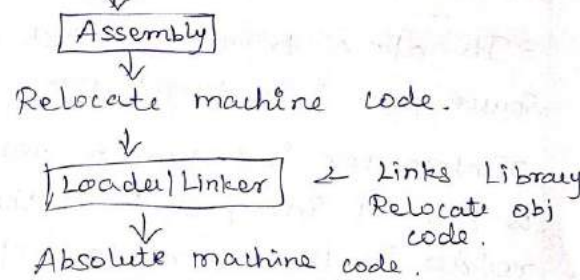 Assembly
Relocate machine code.
Loader/Linker
Links Library
Relocate obj
code.
Absolute machine code.